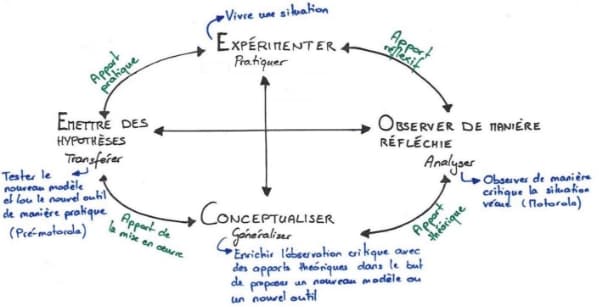 Vivre une situation
EXPÉRIMENTER
Pratiquer
Apport
pratique
Apport
réflexif
EMETTRE DES
HYPOTHÈSES
Transférer
OBSERVER DE MANIÈRE
RÉFLÉCHIE
Analyser
Tester le
nouveau modèle
et/ou le nouvel outil
de manière pratique
(Pré-motorola)
Observer de manière
critique la situation
vécue (Motorola)
Apport de
la mise en oeuvre
CONCEPTUALISER
Généraliser
Apport
théorique
Enrichir l'observation critique avec
des apports théoriques dans le but
de proposer un nouveau modèle ou
un nouvel outil